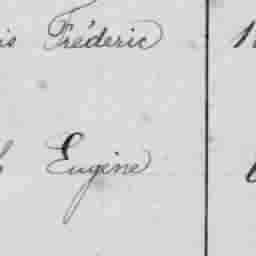 is Fréderic
Eugène